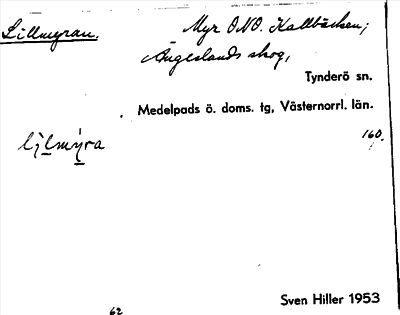 Lillmyran.
Myr ONO. Kallbäcken;
Ångeslands skog,
Tynderö sn.
Medelpads ö. doms. tg, Västernorrl. län.
160.
Sven Hiller 1953
62